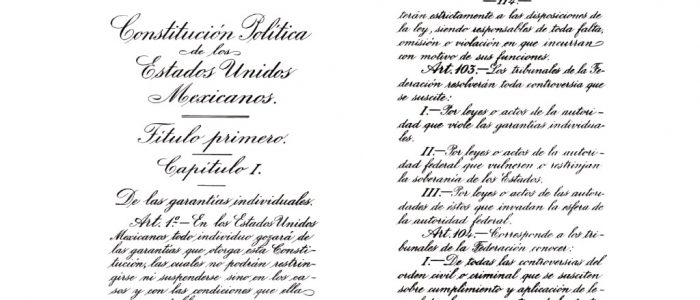 Constitución Política
de los
Estados Unidos
Mexicanos.
Título primero.
Capítulo I.
De las garantías individuales.
Art. 1º.—En los Estados Unidos
Mexicanos todo individuo gozará de
las garantías que otorga esta Consti-
tución, las cuales no podrán restrin-
girse ni suspenderse sino en los ca-
sos y con las condiciones que ella
—114.—
terán estrictamente a las disposiciones de
la ley, siendo responsables de toda falta,
omisión o violación en que incurran
con motivo de sus funciones.
Art. 103.—Los tribunales de la Fe-
deración resolverán toda controversia que
se suscite:
I.—Por leyes o actos de la autori-
dad que viole las garantías individua-
les.
II.—Por leyes o actos de la autori-
dad federal que vulneren o restrinjan
la soberanía de los Estados.
III.—Por leyes o actos de las autori-
dades de éstos que invadan la esfera de
la autoridad federal.
Art. 104.—Corresponde a los tri-
bunales de la Federación conocer:
I.—De todas las controversias del
orden civil o criminal que se susciten
sobre cumplimiento y aplicación de le-